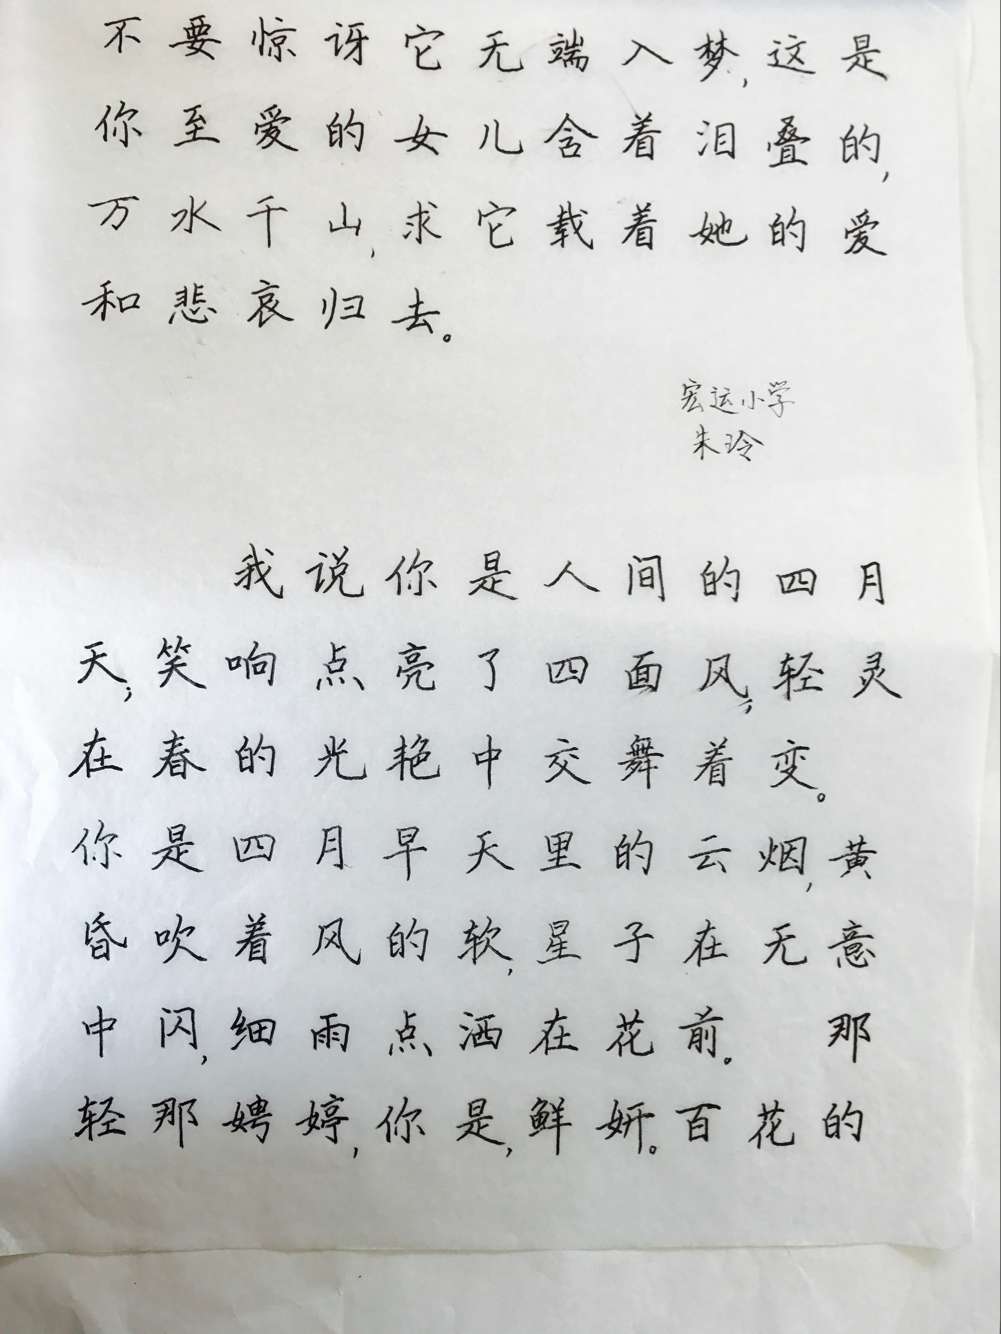 不要惊讶它无端入梦,这是
你至爱的女儿含着泪叠的,
万水千山,求它载着她的爱
和悲哀归去。
宏运小学
朱玲
我说你是人间的四月
天;笑响点亮了四面风;轻灵
在春的光艳中交舞着变。
你是四月早天里的云烟,黄
昏吹着风的软,星子在无意
中闪,细雨点洒在花前。 那
轻那娉婷,你是,鲜妍。百花的